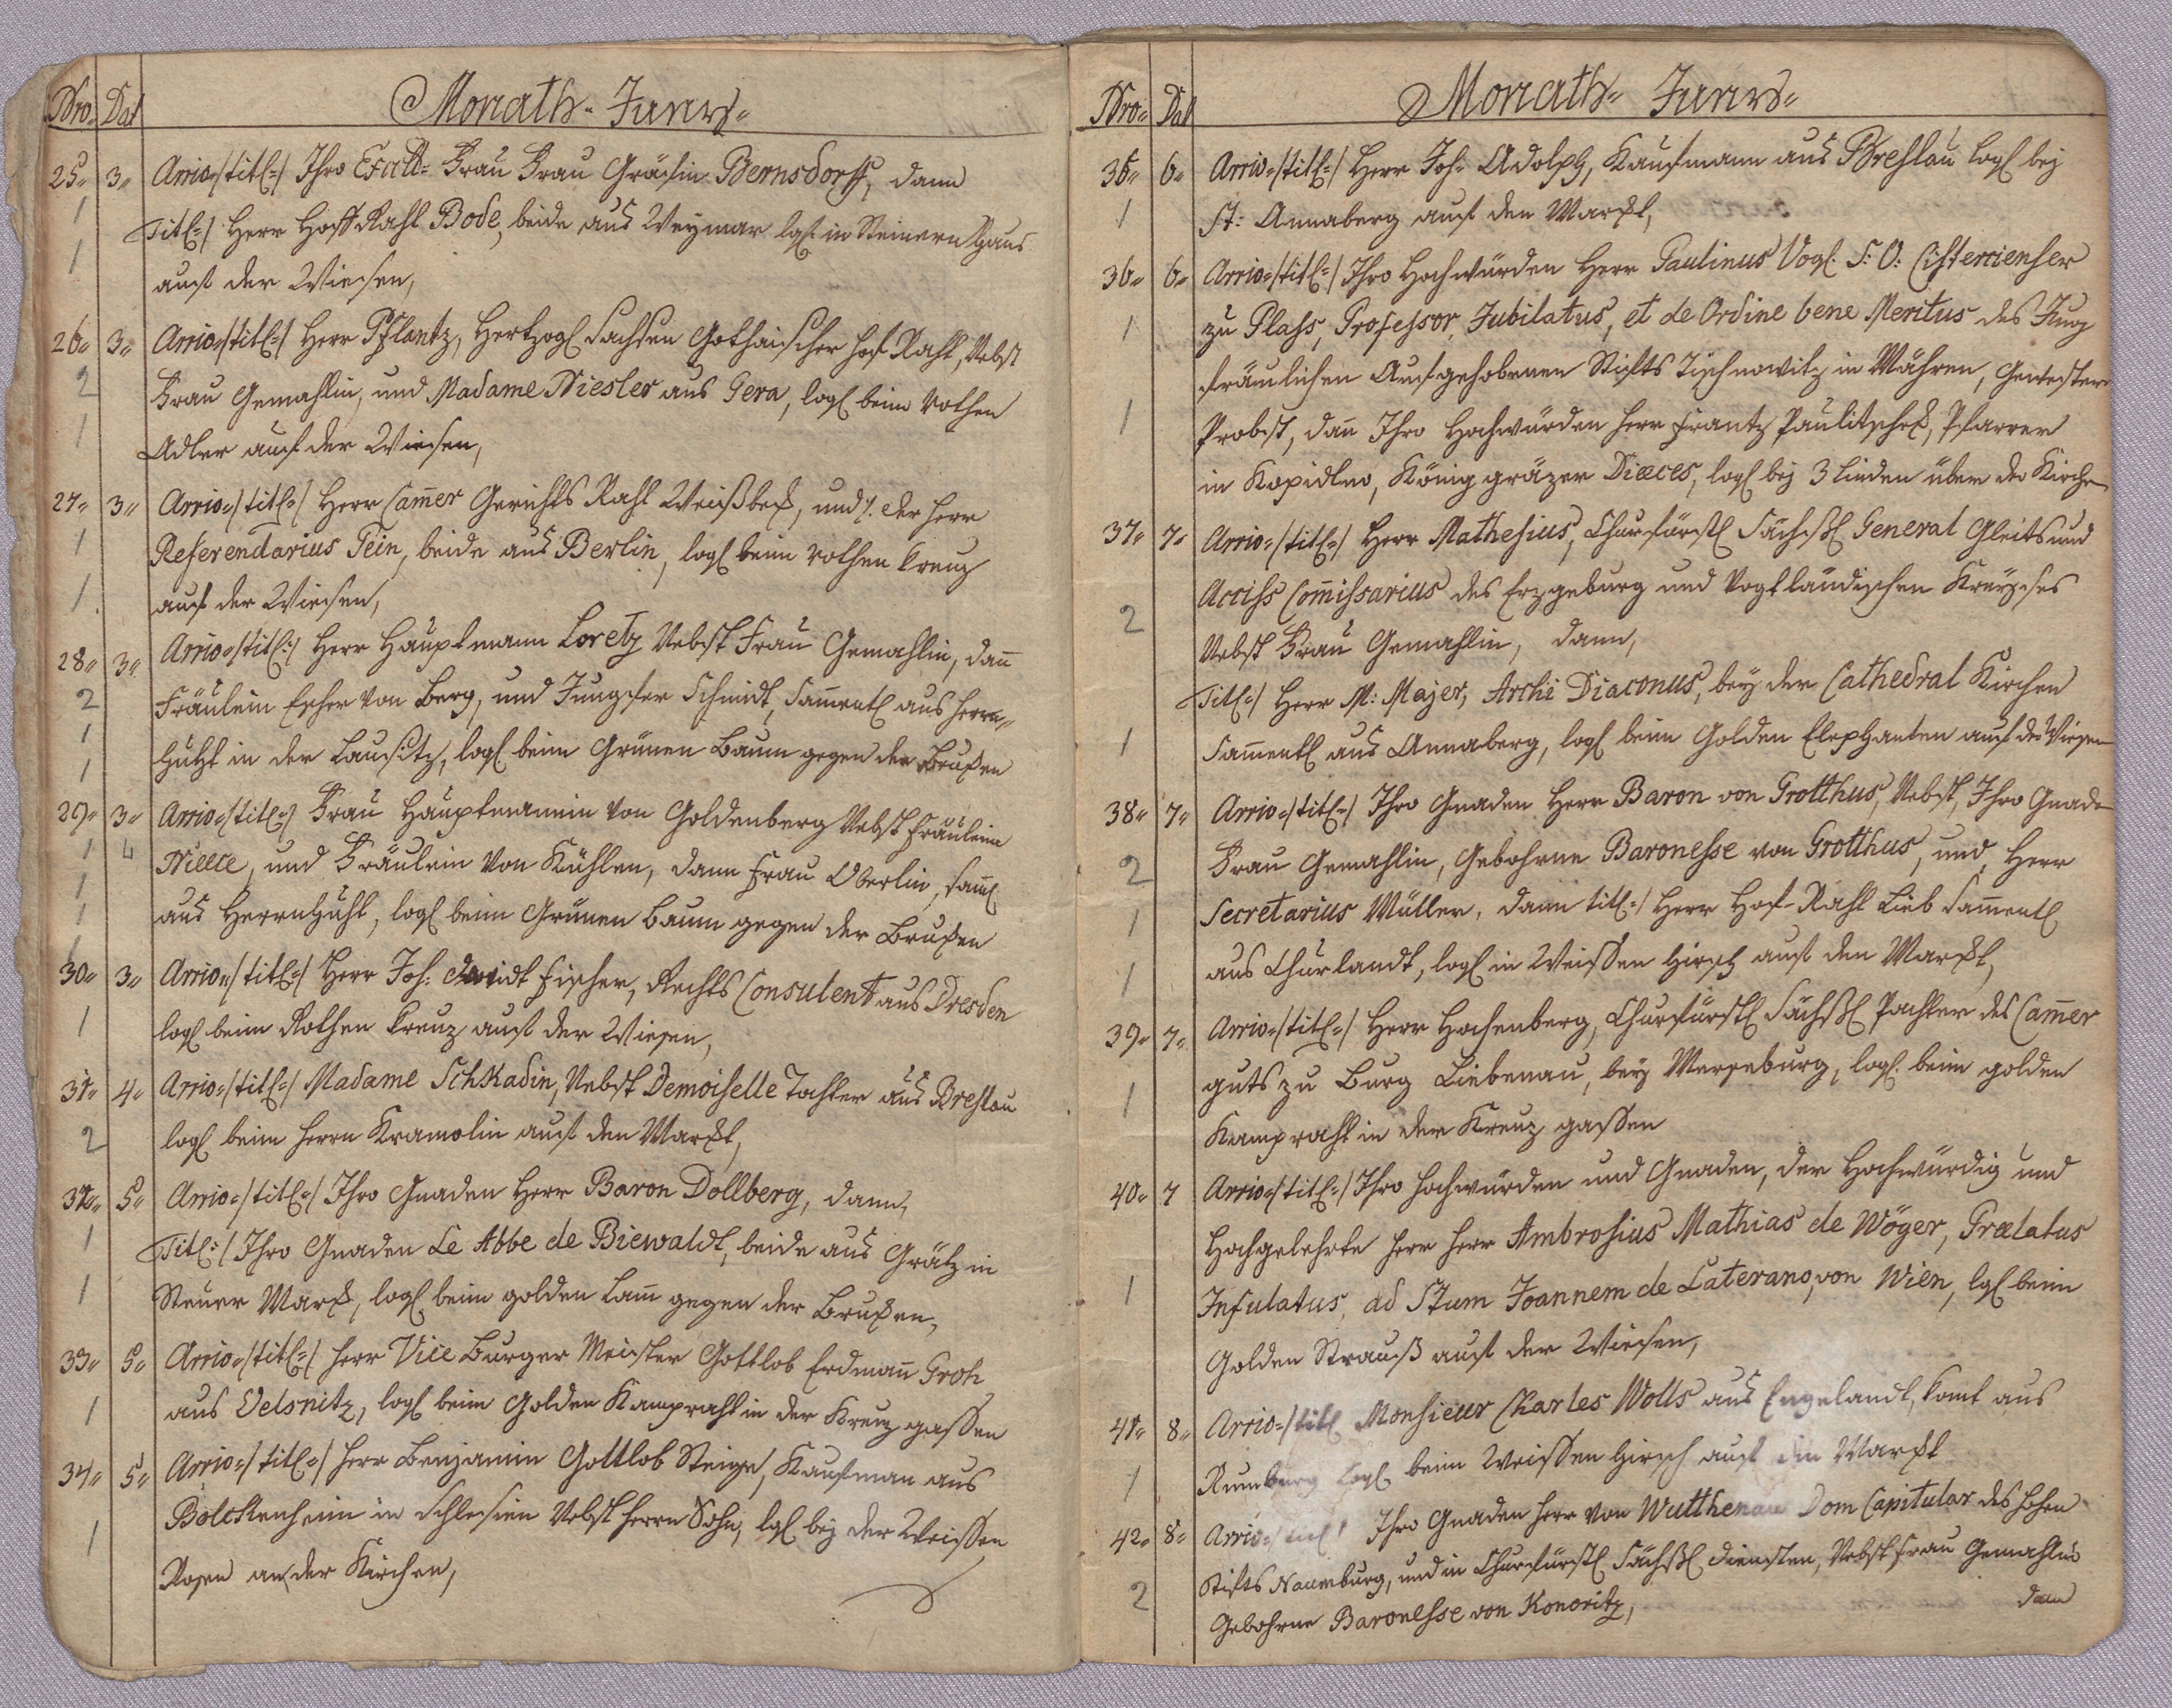 Nro. Dat Monath- Junus-
25. 3. Arrio-/titl=/ Ihro Excell= Frau Frau Gräfin Bernsdorff, dann
1 Titl=/ Herr Hoff Raht Bode, beide aus Weymar logl in Steinern Haus
1 auf der Wiesen,
26. 3. Arrio-/titl=/ Herr Pflantz, Hertzogl Sachsen Gothaischer Hof Raht, Nebst
2 Frau Gemahlin, und Madame Niesler aus Gera, logl beim rothen
1 Adler auf der Wiesen,
27. 3. Arrio-/titl=/ Herr Cam̄er Gerichts Raht Weißbeck, und der Herr
1 Referendarius Tein, beide aus Berlin, logl beim rothen Creuz
1 auf der Wiesen,
28. 3. Arrio-/titl=/ Herr Hauptmann Loretz Nebst Frau Gemahlin, dan̄
2 Fräulein Escher von Berg, und Jungfer Schmidt, Sam̄entl aus Herrn-
1 huht in der Lausitz, logl beim Grünen Baum gegen der Brucken
1
29. 3. Arrio-/titl=/ Frau Hauptmannin von Goldenberg Nebst Fräulein
1 4 Niece, und Fräulein von Kühlen, dann Frau Oberlin, sam̄l
1 aus Herrnhuht, logl beim Grünen Baum gegen der Brucken
1
1
30. 3. Arrio-/titl=/ Herr Joh: Fischer, Rechts Consulent aus Dresden
1 logl beim Rothen Creuz auf der Wiesen,
31. 4. Arrio-/titl=/ Madame Schkadin, Nebst Demoiselle Tochter aus Breslau
2 logl beim Herrn Kramolin auf den Markt,
32. 5. Arrio-/titl=/ Ihro Gnaden Herr Baron Dollberg, dann,
1 Titl=/ Ihro Gnaden Le Abbe de Biewaldt, beide aus Grätz in
1 Steuer Mark, logl beim golden Lam̄ gegen der Brucken,
33. 5. Arrio-/titl=/ Herr Vice Burger Meister Gottlob Erdman̄ Groh
1 aus Oelsnitz, logl beim Golden Kamprahl in der Kreuz gassen
34. 5. Arrio-/titl=/ Herr Benjamin Gottlob Steige, Kaufman aus
1 Bolckenheim in Schlesien Nebst Herrn Sohn, logl bej der Weissen
Rosen an der Kirchen,
Nro= Dat Monath= Junus=
35. 6. Arrio=/titl=/ Herr Joh= Adolph, Kaufmann aus Breslau logl bej
1 St: Annaberg auf den Markt,
36. 6. Arrio=/titl=/ Ihro Hochwürden Herr Paulinus Vogl: S: O: Cistercienser
1 zu Plass, Professor, Jubilatus, et de Ordine bene Meritus des Jung
fräulichen Aufgehobenen Stifts Tischnowitz in Mähren, Gewester
1 Probst, dan̄ Ihro Hochwürden Herr Frantz Paulitscheck, Pfarrer
in Kopidlno, König gräzer Diæces, logl bej 3 Linden über der Kirchen
37. 7. Arrio=/titl=/ Herr Mathesius, Churfürstl Sächsl General Gleits und
2 Acciss Com̄issarius des Erzgeburg und Vogtländischen Kreyses
Nebst Frau Gemahlin, dann,
Titl=/ Herr M: Majer, Archi Diaconus, bey der Cathedral Kirchen
1 Sam̄entl aus Annaberg, logl beim Golden Elephanten auf der Wiesen
38. 7. Arrio=/titl=/ Ihro Gnaden Herr Baron von Grotthus, Nebst, Ihro Gnade
2 Frau Gemahlin, Gebohrne Baronesse von Grotthus, und Herr
1 Secretarius Müller, dann titl=/ Herr Hof-Raht Lieb Sam̄entl
1 aus Churlandt, logl in Weissen Hirsch auf den Markt,
39. 7. Arrio=/titl=/ Herr Hochenberg, Churfürstl Sächsl Pachter des Cam̄er
1 guts zu Burg Liebenau, bey Merseburg, logl: beim golden
Kamprahl in der Kreuz gassen
40. 7 Arrio=/titl=/ Ihro Hochwürden und Gnaden, der Hochwürdig und
Hochgelehrte Herr Herr Ambrosius Mathias de Wöger, Prælatus
1 Infulatus, ad Stum Joannem de Laterano, von Wien, logl beim
Golden Strauß auf der Wiesen,
41. 8. Arrio=/titl Monsieur Charles Wolls aus Engelandt, komt aus
1 Rumburg logl beim Weissen Hirsch auf den Markt
42. 8. Arrio=/titl/ Ihro Gnaden Herr von Wutthenau Dom Capitular des Hohen
2 Stifts Naumburg, und in Churfürstl Sächsl diensten, Nebst Frau Gemahlin
Gebohrne Baronesse von Konoritz,
dann